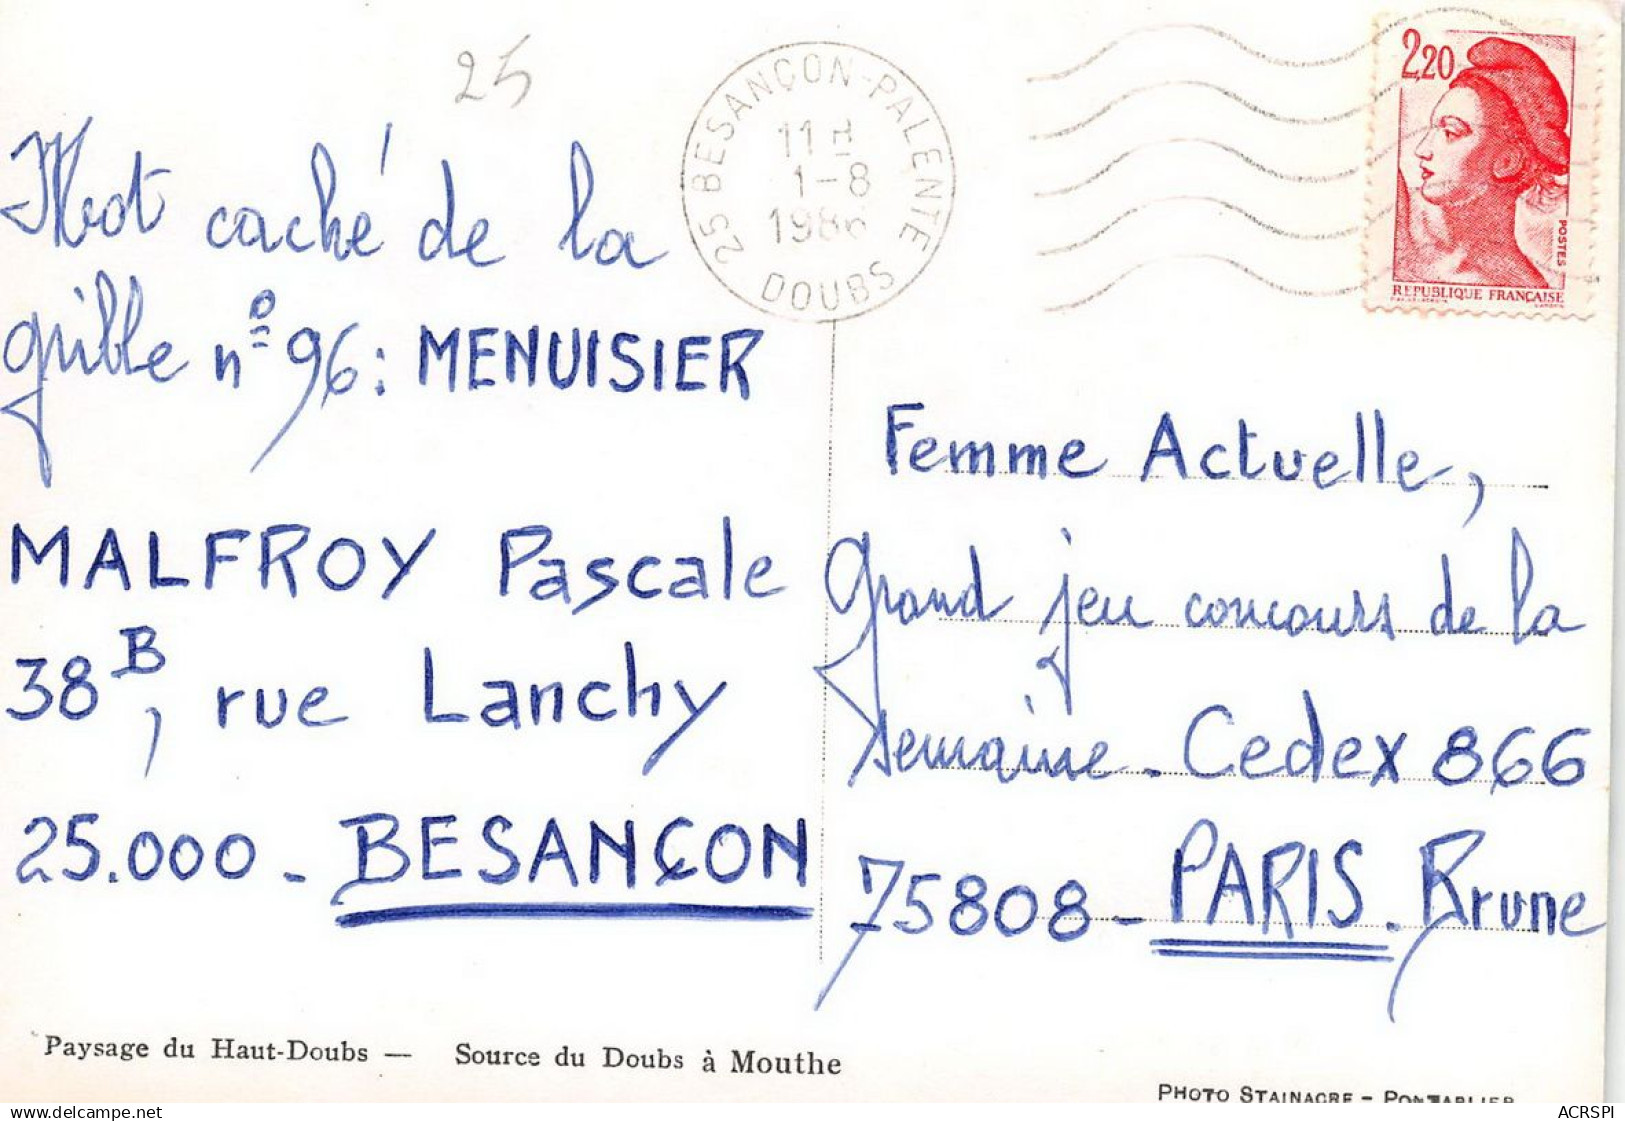 25
25 BESANÇON-PALENTE
11 H
1-8
1986
DOUBS
2,20
POSTES
REPUBLIQUE FRANÇAISE
Mot caché de la
grille n° 96 : MENUISIER
MALFROY Pascale
38 B, rue Lanchy
25.000 - BESANÇON
Femme Actuelle,
Grand jeu concours de la
semaine - Cedex 866
75808 - PARIS. Brune
Paysage du Haut-Doubs — Source du Doubs à Mouthe
PHOTO STAINACRE - PONTARLIER
ACRSPI